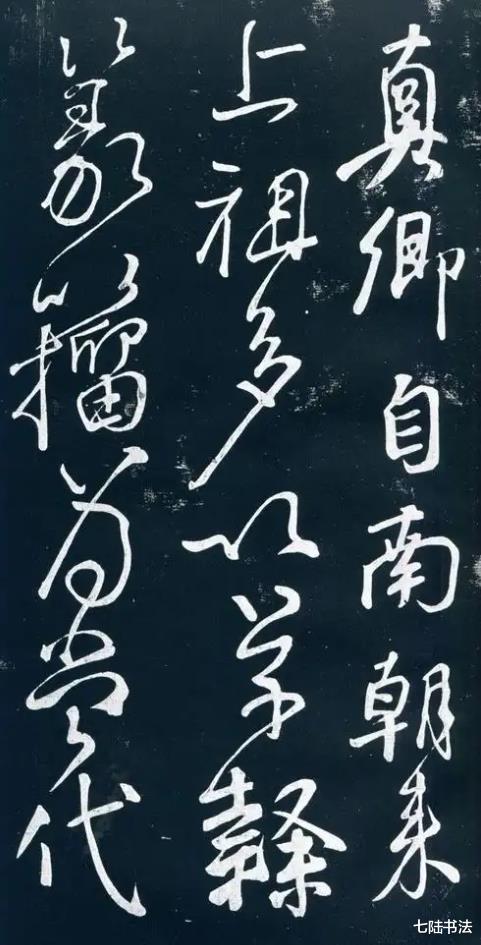 真卿自南朝来
上祖多以草隸
篆籀為當代
七陆书法